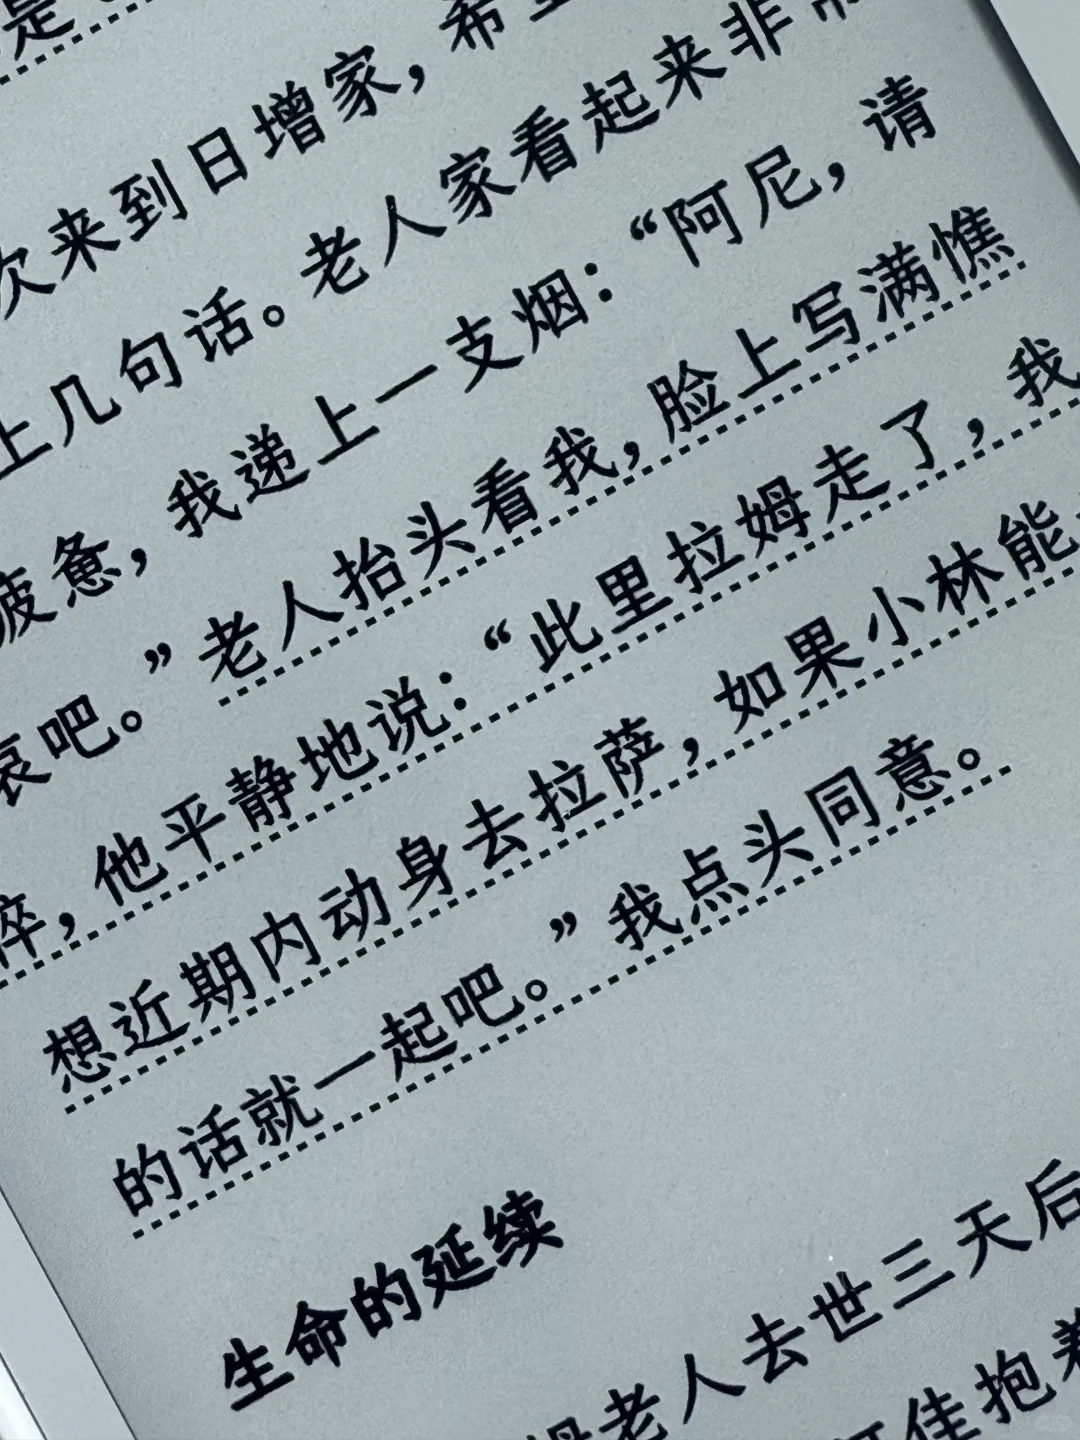 是
次来到日增家，希
上几句话。老人家看起来非常
疲惫，我递上一支烟：“阿尼，请
哀吧。”老人抬头看我，脸上写满憔
悴，他平静地说：“此里拉姆走了，我
想近期内动身去拉萨，如果小林能
的话就一起吧。”我点头同意。
生命的延续
姆老人去世三天后
佳抱着